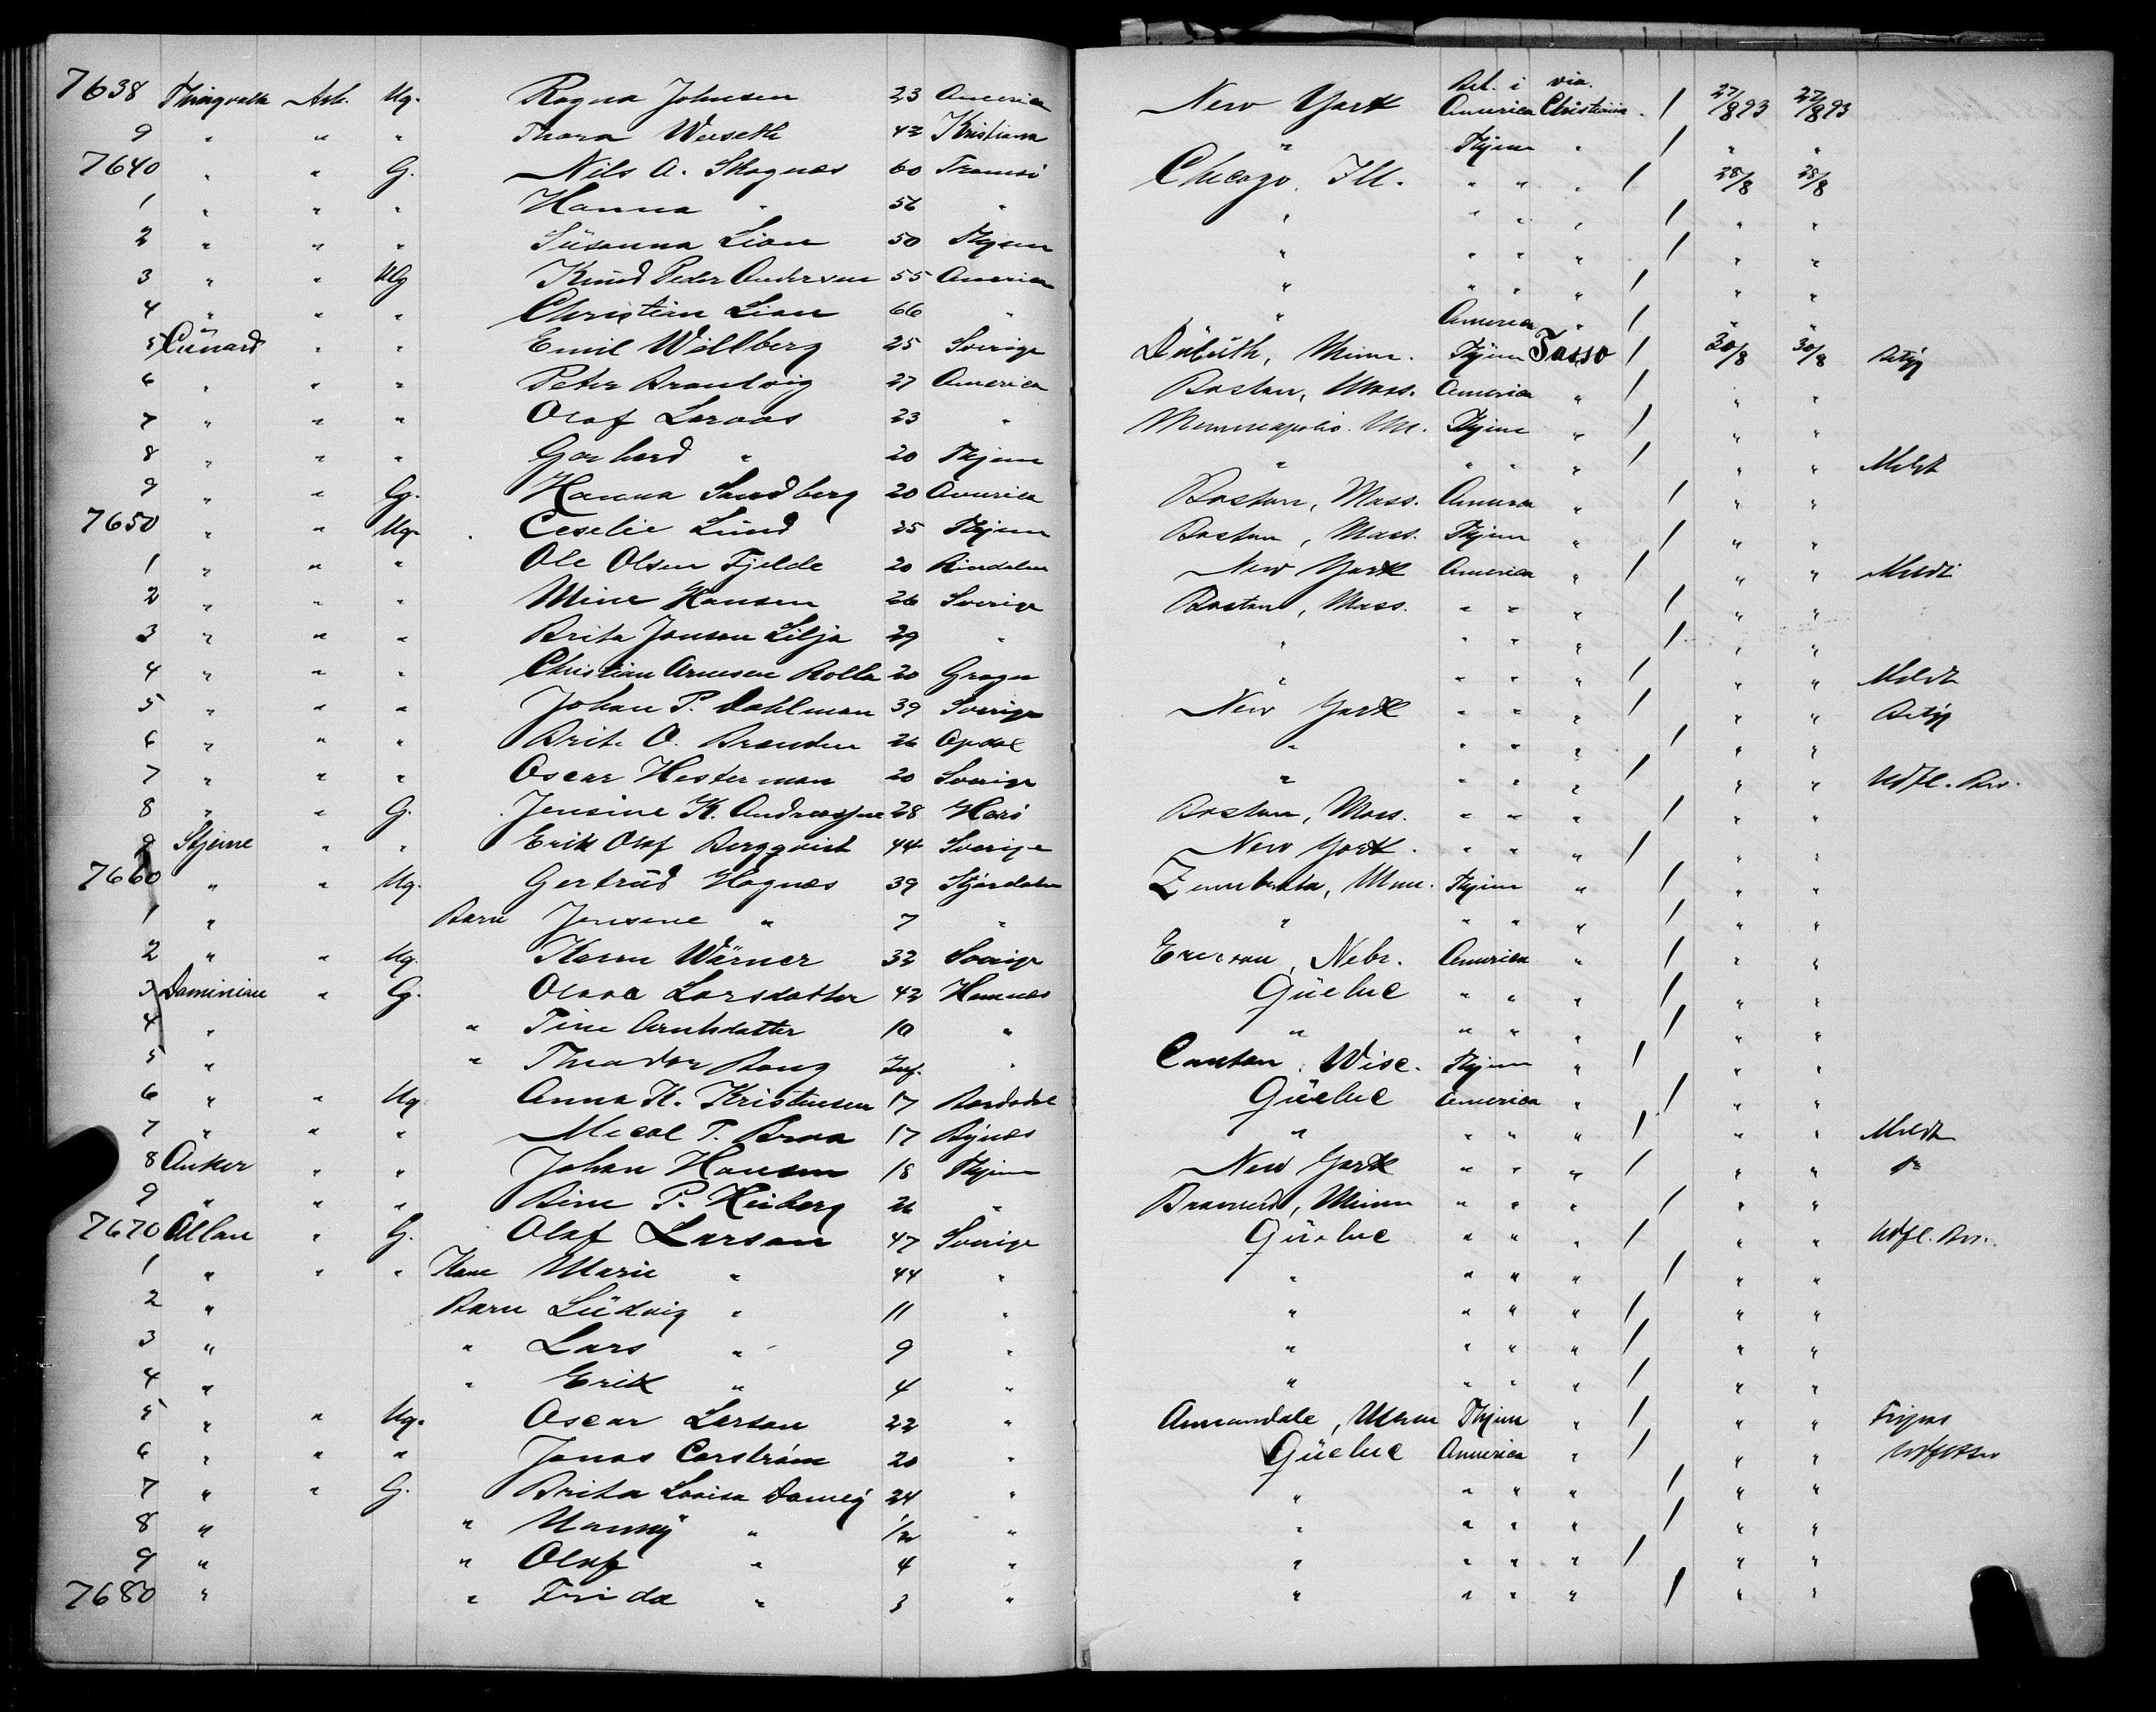 Bet. i via.
7638 Thingvalla Arb. Ug. Ragna Johnsen 23 America New York America Christiania / 27/8 93 27/8 93
9 " " " Thora Weiseth 42 Kristiana " Thjem " / " "
7640 " " G. Nils A. Skognæs 60 Tromsö Chicago, Ill. " " " / 28/8 28/8
1 " " " Hanna " 56 " " " " " / " "
2 " " " Susanna Lian 50 Thjem " " " " / " "
3 " " Ug Knud Peder Andersen 55 America " " " " / " "
4 " " " Christian Lian 66 " " America " / " "
5 Cunard " " Emil Willberg 25 Sverige Duluth, Minn. Thjem Tasso / 30/8 30/8
6 " " " Peter Brandvig 27 America Boston, Mass. America " / " "
7 " " " Olaf Laraas 23 " Minneapolis. Thjem " / " "
8 " " " Gerhard " 20 Thjem " " " " / " " Meldt
9 " " G. Hanna Sandberg 20 America Boston, Mass. America " / " "
7650 " " Ug. Ceselie Lund 25 Thjem Boston, Mass. Thjem " / " "
1 " " " Ole Olsen Fjelde 20 Rindalen New York America " / " " Meldt
2 " " " Mine Hansen 26 Sverige Boston, Mass. " " " / " "
3 " " " Brita Jonson Lilja 29 " " " " " / " "
4 " " " Christian Arnesen Rolla 20 " " " " / " " Meldt
5 " " " Johan P. Dahlman 39 Sverige New York " " " / " "
6 " " " Brit. O. Branden 26 Opdal " " " " / " "
7 " " " Oscar Hesterman 20 Sverige " " " " / " " Udfl. Bev.
8 " " G. Jensine K. Andreassen 28 Boston, Mass. " " " / " "
9 Stjerne " " Erik Olaf Bergqvist 44 Sverige New York. " " " / " "
7660 " " Ug. Gertrud Hognæs 39 Stjørdalen Zumbrota, Minn. Thjem " / " "
1 " Barn Jensine " 7 " " " " " / " "
2 " " Ug. Karen Wärner 32 Sverige Ericson, Nebr. America " / " "
3 Dominion " G. Olava Larsdatter 42 Hemnes Quebec " " " / " "
4 " " Tine Arntsdatter 10 " " " " " / " "
5 " " Theador Inf. " Canton, Wisc. Thjem " / " "
6 " " Ug Anna K. Kristensen 17 Quebec America " / " "
7 " " " P. Braa 17 Bynes " " " " / " " Meldt
8 Anker " " Johan Hansen 18 Thjem New York " " " / " "
9 " " " P. Heiberg 26 " Brainerd, Minn " " " / " "
7670 Allan " G. Olaf Larson 47 Sverige Quebec " " " / " " Udfl. Bev.
1 " " " Kone Marie " 44 " " " " " / " "
2 " Barn Ludvig " 11 " " " " " / " "
3 " " Lars " 9 " " " " " / " "
4 " " Erik " 4 " " " " " / " "
5 " " Ug. Oscar Larson 22 " Annandale, Minn Thjem " / " " Fripas
6 " " " Jonas Carström 20 " Quebec America " / " "
7 " " G. Brita Lovisa 24 " " " " " / " "
8 " " Nanny " 1/2 " " " " " / " "
9 " " Olaf " 4 " " " " " / " "
7680 " " Frida " 3 " " " " " / " "